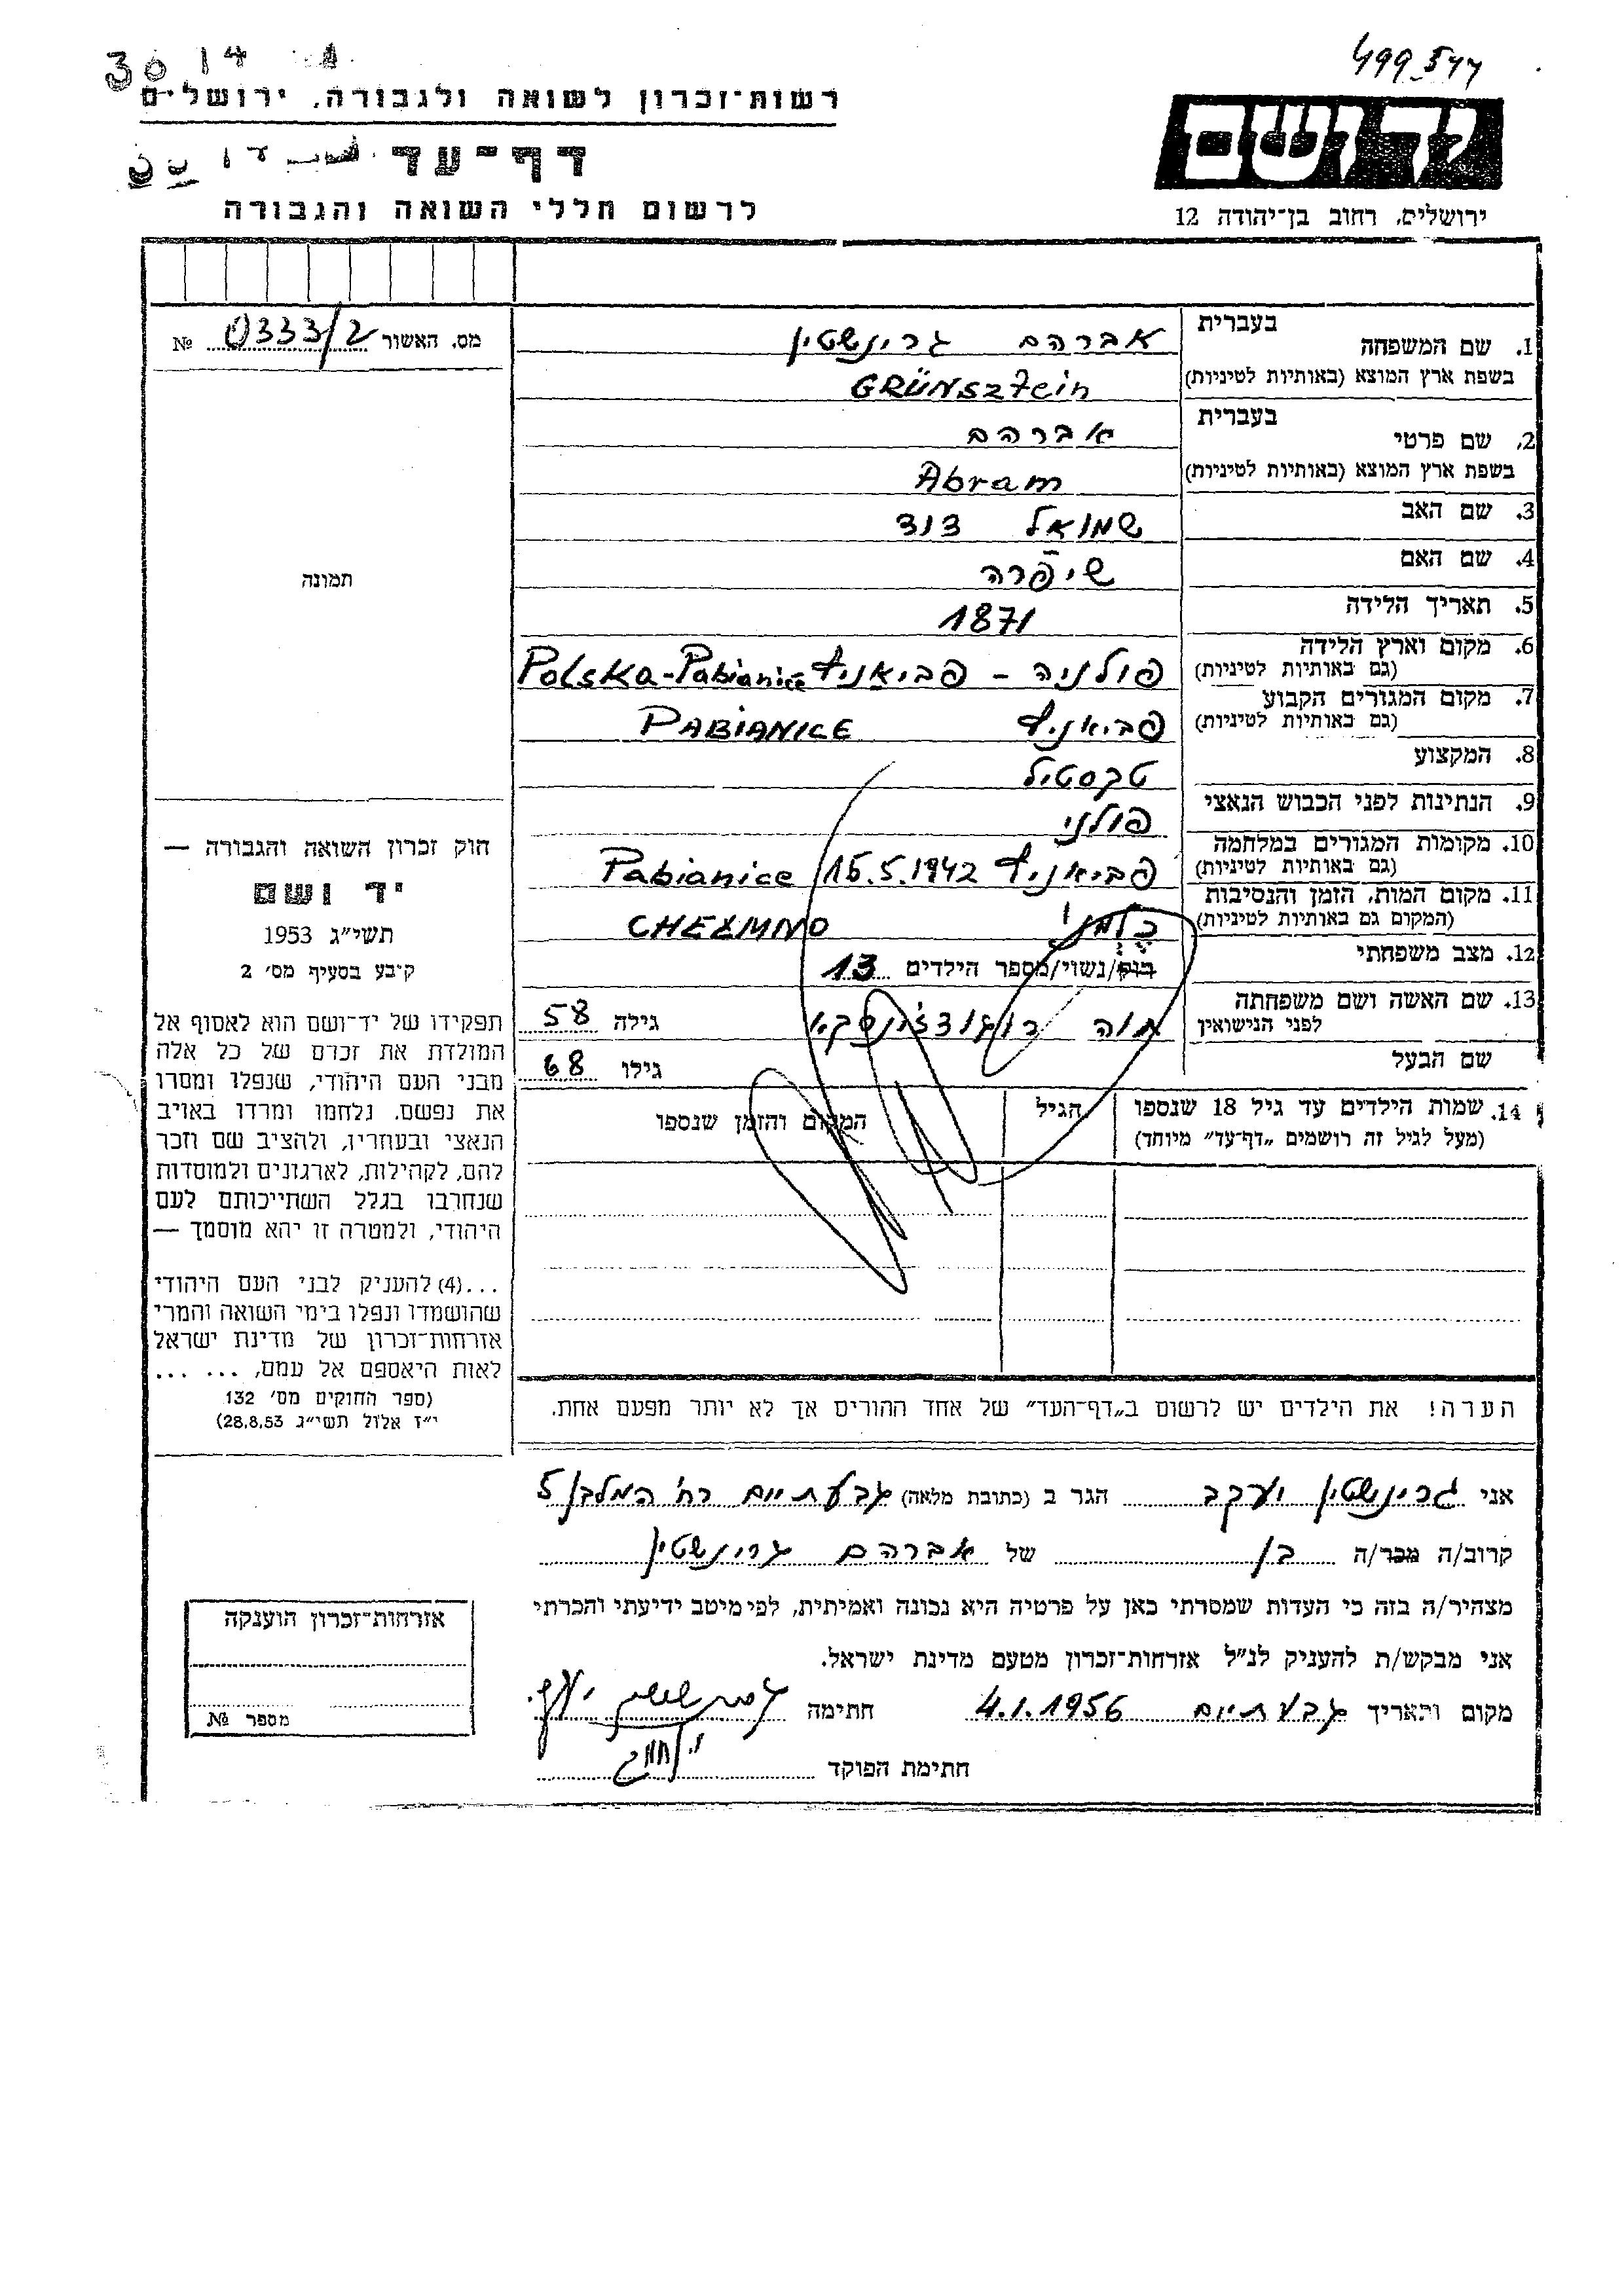 3014
499-544
רשות־זכרון לשואה ולגבורה, ירושלים
ידושם
דף־עד
לרשום חללי השואה והגבורה
ירושלים, רחוב בן־יהודה 12
מס. האשור 0333/2 №
תמונה
בעברית
1. שם המשפחה אברהם גרינשטין
בשפת ארץ המוצא (באותיות לטיניות) GRÜNSZtein
בעברית
2. שם פרטי אברהם
בשפת ארץ המוצא (באותיות לטיניות) Abram
3. שם האב שמואל דוד
4. שם האם שיפרה
5. תאריך הלידה 1871
6. מקום וארץ הלידה (גם באותיות לטיניות) פולניה - פביאניץ Polska-Pabianice
7. מקום המגורים הקבוע (גם באותיות לטיניות) פביאניץ PABIANICE
8. המקצוע טקסטיל
9. הנתינות לפני הכבוש הנאצי פולני
10. מקומות המגורים במלחמה (גם באותיות לטיניות) פביאניץ Pabianice 15.5.1942
11. מקום המות, הזמן והנסיבות (המקום גם באותיות לטיניות) CHEŁMNO
12. מצב משפחתי רווק/נשוי/מספר הילדים 13
13. שם האשה ושם משפחתה לפני הנישואין חוה גילה 58
שם הבעל גילו 68
14. שמות הילדים עד גיל 18 שנספו הגיל המקום והזמן שנספו
(מעל לגיל זה רושמים „דף־עד” מיוחד)
הערה! את הילדים יש לרשום ב„דף־העד” של אחד ההורים אך לא יותר מפעם אחת.
חוק זכרון השואה והגבורה —
יד ושם
תשי״ג 1953
קיבע בסעיף מס׳ 2
תפקידו של יד־ושם הוא לאסוף אל
המולדת את זכרם של כל אלה
מבני העם היהודי, שנפלו ומסרו
את נפשם, נלחמו ומרדו באויב
הנאצי ובעוזריו, ולהציב שם וזכר
להם, לקהילות, לארגונים ולמוסדות
שנחרבו בגלל השתייכותם לעם
היהודי, ולמטרה זו יהא מוסמך —
...(4) להעניק לבני העם היהודי
שהושמדו ונפלו בימי השואה והמרי
אזרחות־זכרון של מדינת ישראל
לאות היאספם אל עמם, ... ...
(ספר החוקים מס׳ 132
י״ז אלול תשי״ג 28.8.53)
אני גרינשטין יעקב הגר ב (כתובת מלאה) גבעתיים רח׳ המלבן 5
קרוב/ה מכר/ה בן של אברהם גרינשטין
מצהיר/ה בזה כי העדות שמסרתי כאן על פרטיה היא נכונה ואמיתית, לפי מיטב ידיעתי והכרתי
אני מבקש/ת להעניק לנ״ל אזרחות־זכרון מטעם מדינת ישראל.
מקום ותאריך גבעתיים 4.1.1956 חתימה
חתימת הפוקד
אזרחות־זכרון הוענקה
מספר №